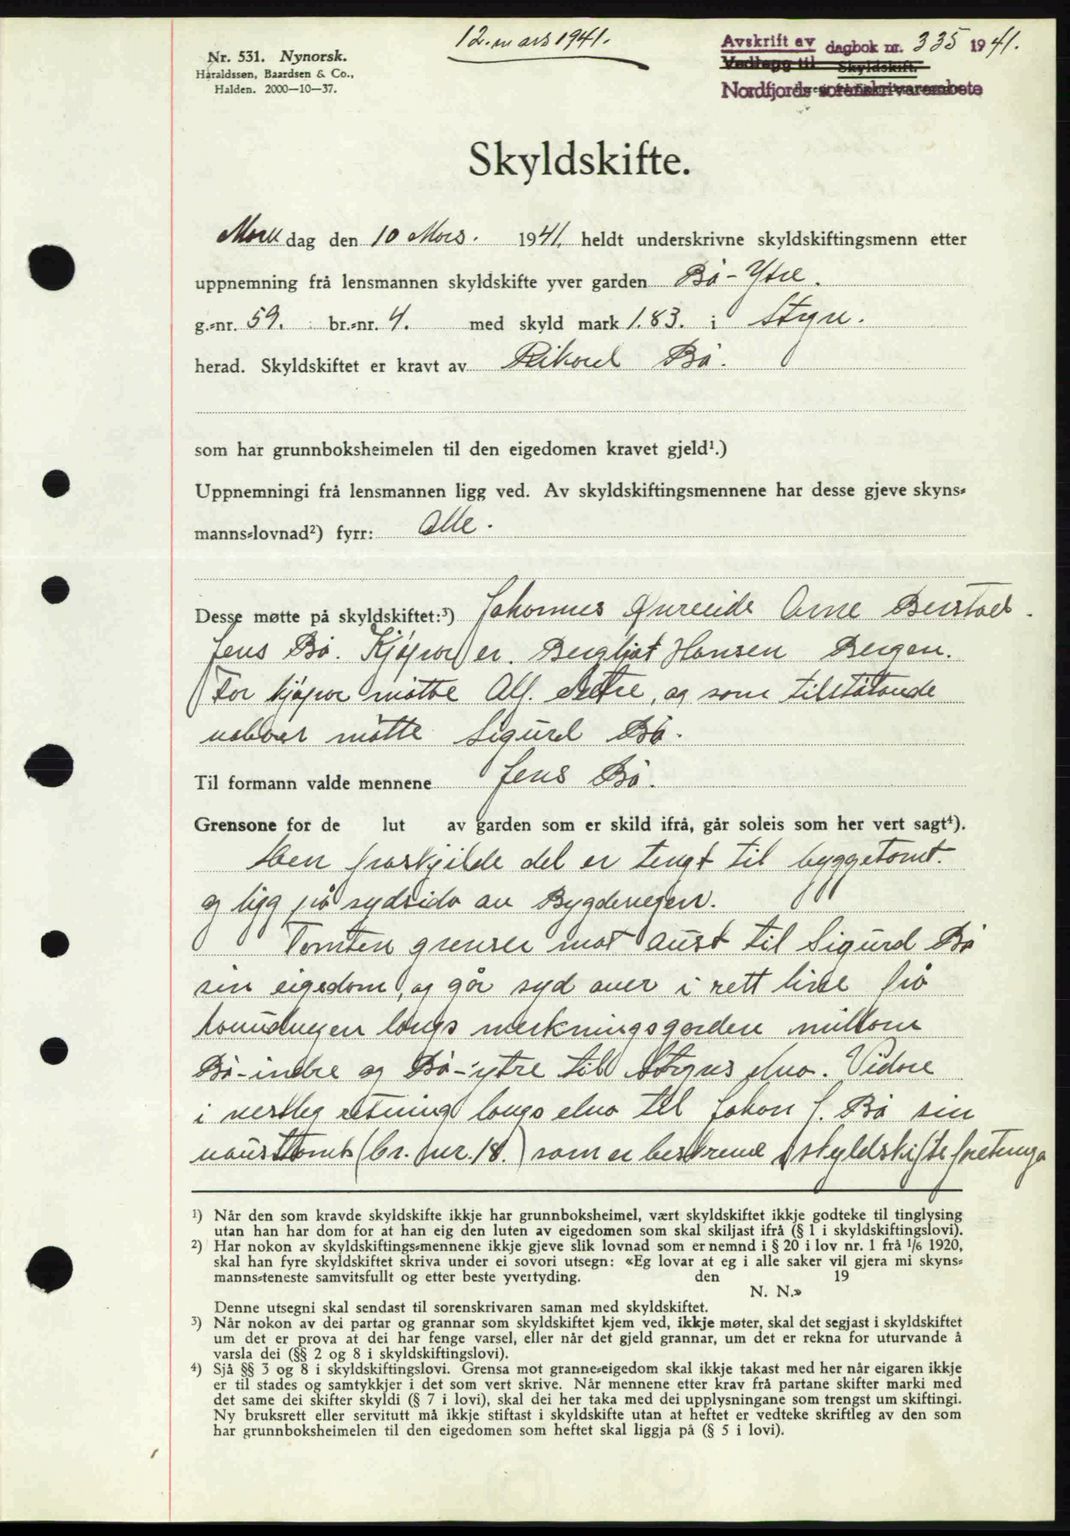 12. mars 1941.
Nr. 531. Nynorsk.
Haraldssen, Baardsen & Co.,
Halden. 2000—10—37.
Avskrift av dagbok nr. 335 1941.
Vedlegg til Skyldskift.
Nordfjords sorenskrivarembete
Skyldskifte.
dag den 10 Mars. 1941, heldt underskrivne skyldskiftingsmenn etter
uppnemning frå lensmannen skyldskifte yver garden Bø-Ytre.
g.=nr. 59. br.=nr. 4. med skyld mark 1.83. i Stryn.
herad. Skyldskiftet er kravt av Rikard Bø.
som har grunnboksheimelen til den eigedomen kravet gjeld¹.)
Uppnemningi frå lensmannen ligg ved. Av skyldskiftingsmennene har desse gjeve skyns=
manns=lovnad²) fyrr: Alle.
Desse møtte på skyldskiftet:³) Johannes Arne
Jens Bø. Kjøpar er. Bergljot Hansen Bergen.
For kjøpar møtte Alf. , og som tilstøtande
naboar møtte Sigurd Bø.
Til formann valde mennene Jens Bø.
Grensone for de lut av garden som er skild ifrå, går soleis som her vert sagt⁴).
Den fraskjilde del er tengt til byggetomt.
og ligg på sydsida av Bygdevegen.
Tomten grenser mot aust til Sigurd Bø
sin eigedom, og går syd over i rett line frå
hovudvegen langs merkningsgarden millom
Bø-indre og Bø-ytre til Stryns elva. Vidare
i vestleg retning langs elva til Johan J. Bø sin
nausttomt (br. nr. 18.) som er beskreve i skyldskifte
¹) Når den som kravde skyldskifte ikkje har grunnboksheimel, vært skyldskiftet ikkje godteke til tinglysing
utan han har dom for at han eig den luten av eigedomen som skal skiljast ifrå (§ 1 i skyldskiftingslovi).
²) Har nokon av skyldskiftings=mennene ikkje gjeve slik lovnad som er nemnd i § 20 i lov nr. 1 frå 1/6 1920,
skal han fyre skyldskiftet skriva under ei sovori utsegn: «Eg lovar at eg i alle saker vil gjera mi skyns=
manns=teneste samvitsfullt og etter beste yvertyding. den 19
N. N.»
Denne utsegni skal sendast til sorenskrivaren saman med skyldskiftet.
³) Når nokon av dei partar og grannar som skyldskiftet kjem ved, ikkje møter, skal det segjast i skyldskiftet
um det er prova at dei har fenge varsel, eller når det gjeld grannar, um det er rekna for uturvande å
varsla dei (§§ 2 og 8 i skyldskiftingslovi).
⁴) Sjå §§ 3 og 8 i skyldskiftingslovi. Grensa mot granne=eigedom skal ikkje takast med her når eigaren ikkje
er til stades og samtykkjer i det som vert skrive. Når mennene etter krav frå partane skifter marki med
det same dei skifter skyldi (§ 7 i lovi), skal dei her taka med dei upplysningane som trengst um skiftingi.
Ny bruksrett eller servitutt må ikkje stiftast i skyldskifte utan at heftet er vedteke skriftleg av den som
har grunnboksheimelen til den eigedomen som heftet skal liggja på (§ 5 i lovi).